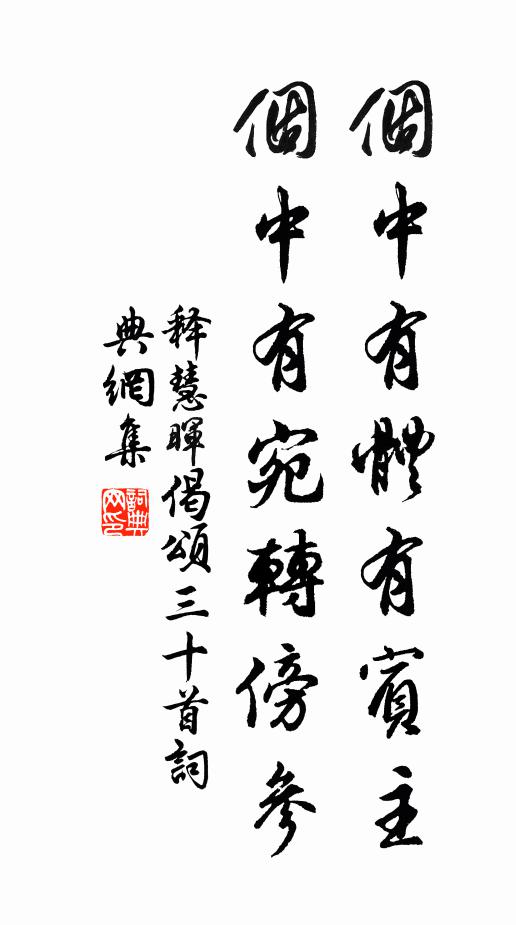 個中有體有賓主
個中有宛轉傍參
釋慧暉偈頌三十首詞
典網集
詞典網印